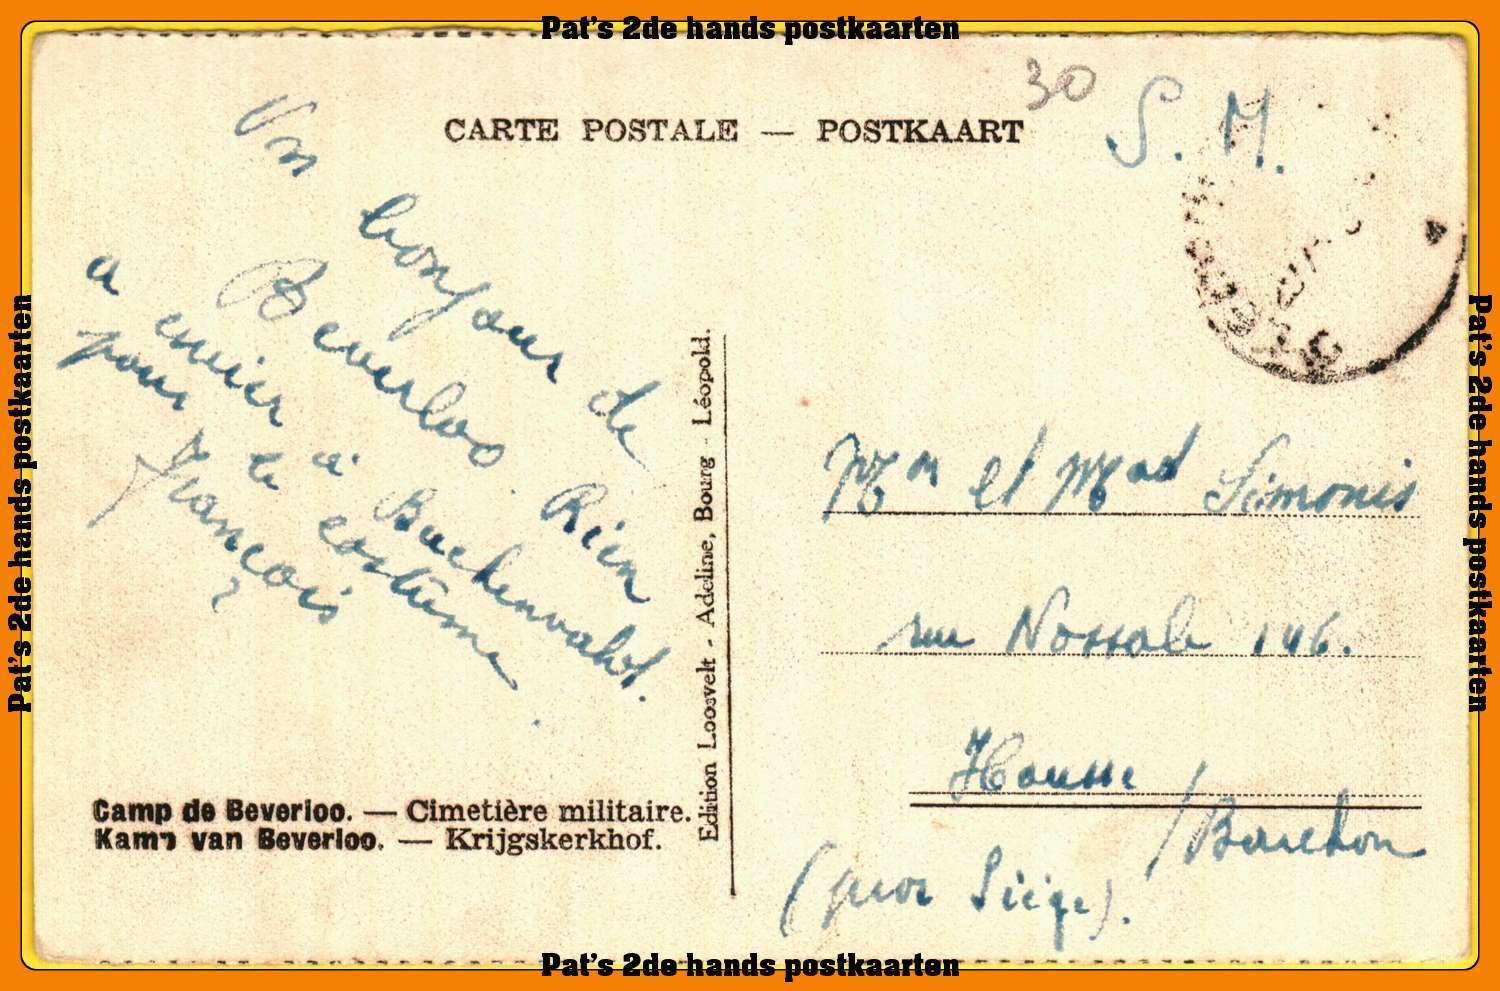 Pat's 2de hands postkaarten
30
S. M.
CARTE POSTALE — POSTKAART
Un
bonjour de
Beverloo. Rien
a envier à Buchenwaldt.
pour le costume.
François
Mr et Mad Simonis
rue 146.
Housse
/ Barchon
(par Liége).
Camp de Beverloo. — Cimetière militaire.
Kamp van Beverloo. — Krijgskerkhof.
Edition Loosvelt - Adeline, Bourg - Léopold.
Pat's 2de hands postkaarten
Pat's 2de hands postkaarten
Pat's 2de hands postkaarten